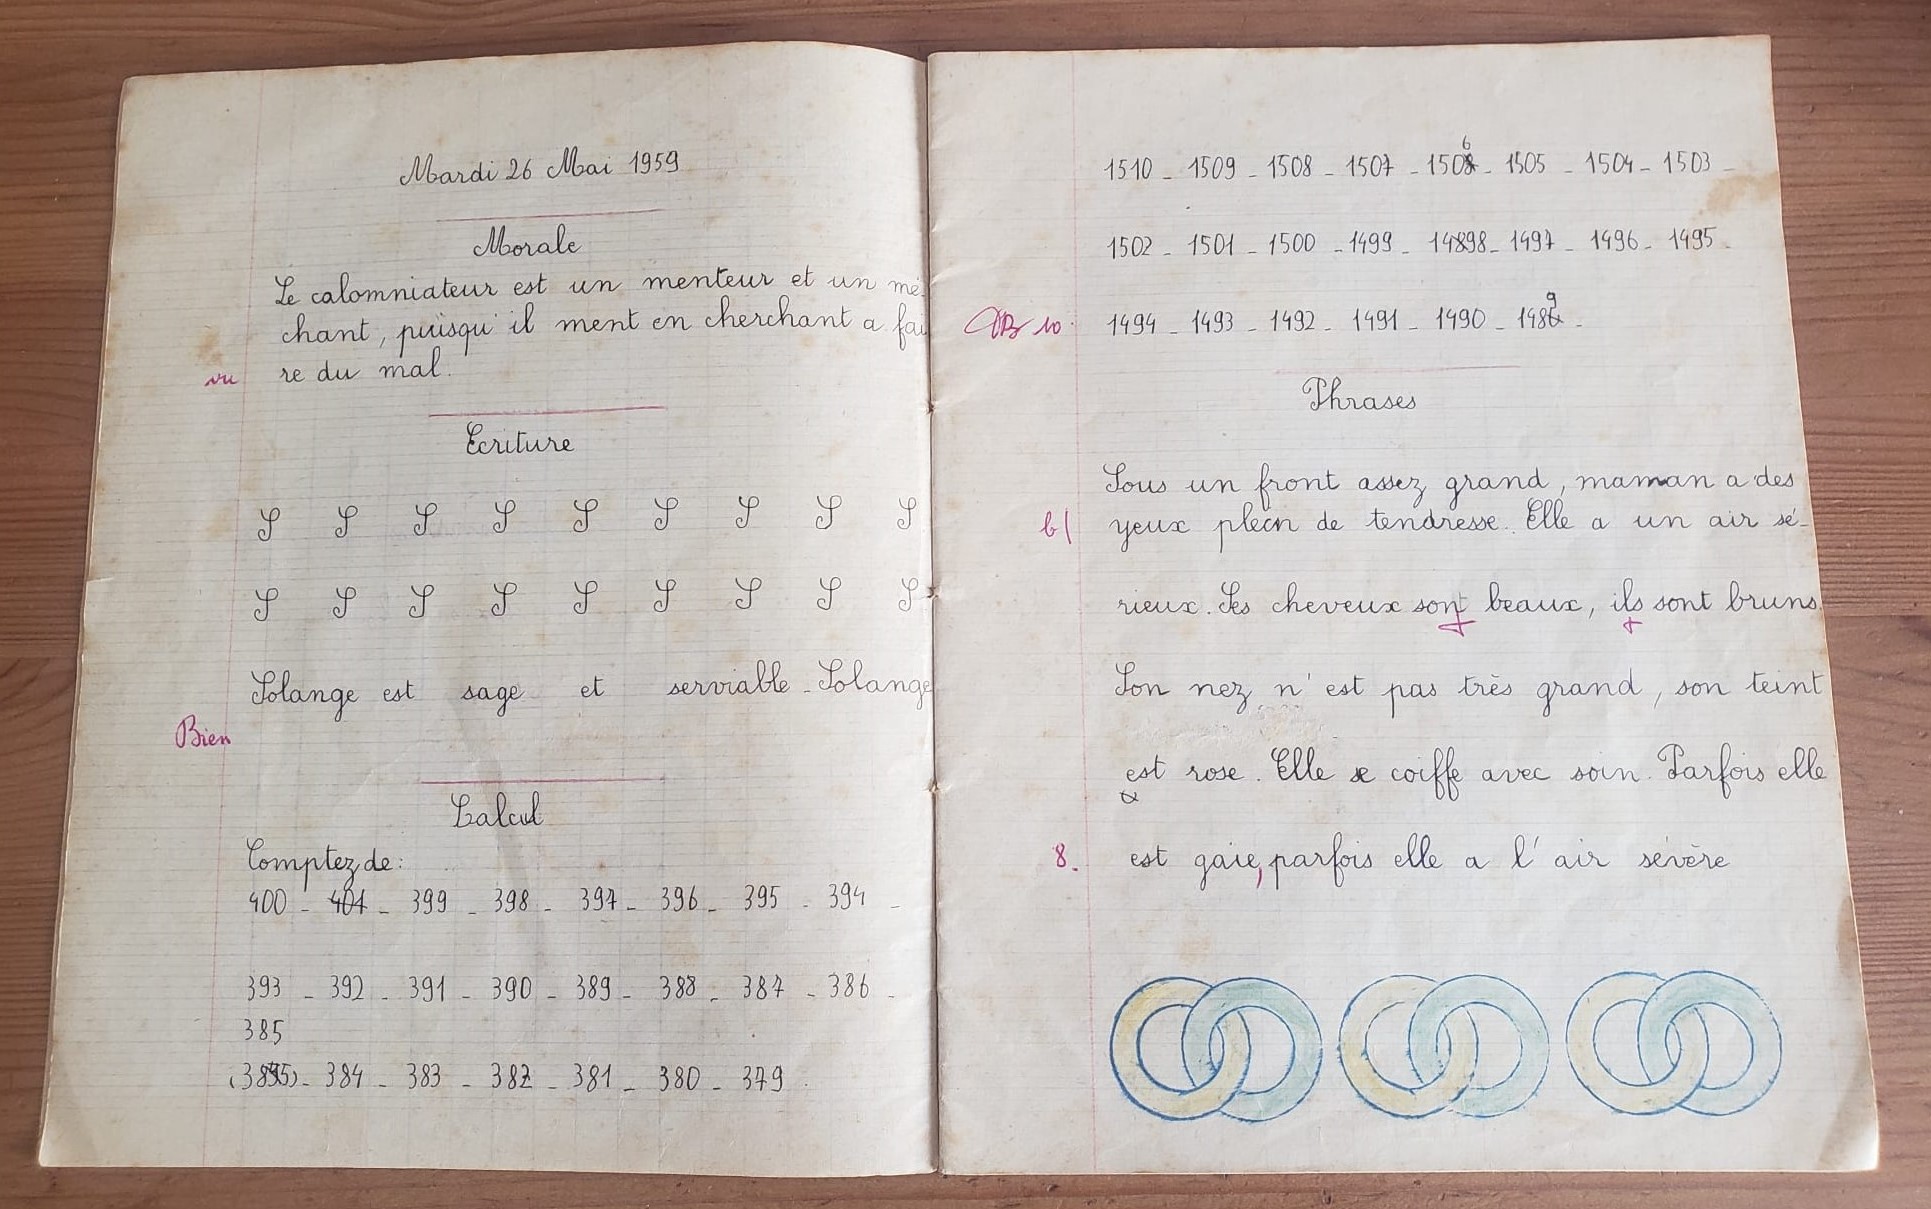 Mardi 26 Mai 1959
Morale
Le calomniateur est un menteur et un mé-
chant, puisqu'il ment en cherchant a fai
vu re du mal.
Ecriture
S S S S S S S S S
S S S S S S S S S
Solange est sage et serviable - Solange
Bien
Calcul
Comptez de :
400 - 401 - 399 - 398 - 397 - 396 - 395 - 394 -
393 - 392 - 391 - 390 - 389 - 388 - 387 - 386 -
385
384 - 383 - 382 - 381 - 380 - 379 .
6
1510 - 1509 - 1508 - 1507 - 1508 - 1505 - 1504 - 1503 -
1502 - 1501 - 1500 - 1499 - 14898 - 1497 - 1496 - 1495 -
9
TB 10 1494 - 1493 - 1492 - 1491 - 1490 - 148 -
Phrases
Sous un front assez grand, maman a des
b/ yeux plein de tendresse. Elle a un air sé-
rieux. Ses cheveux sont beaux, ils sont bruns.
Son nez n'est pas très grand, son teint
est rose. Elle se coiffe avec soin. Parfois elle
8. est gaie, parfois elle a l'air sévère